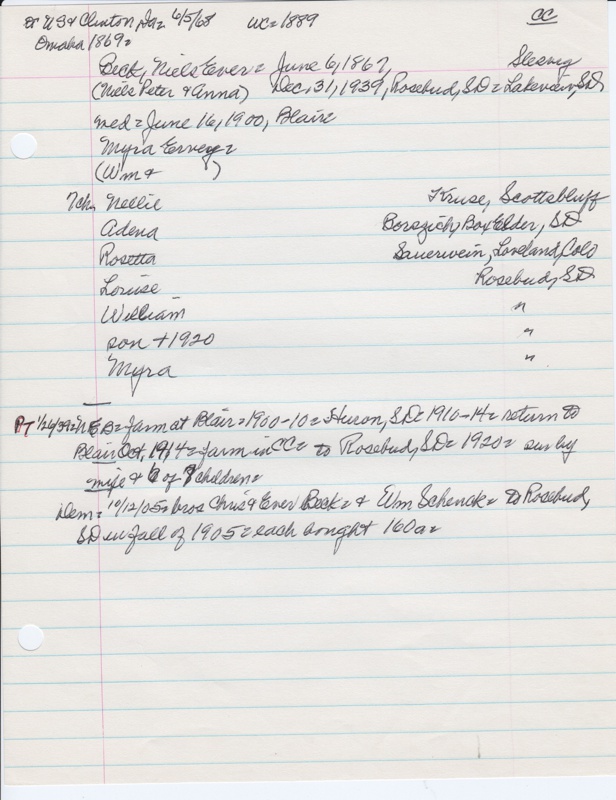 to US & Clinton, Ia= 6/5/68 WC=1889 CC
Omaha 1869=
Beck, Niels Ever= June 6, 1867, Slesvig
(Niels Peter & Anna) Dec, 31, 1939, Rosebud, SD= Lakeview, SD
med=June 16, 1900, Blair
Myra
(Wm & )
7ch, Nellie Kruse, Scottsbluff
Adena Borszich, Box Elder, SD
Rosetta Sauerwein, Loveland, Colo
Louise Rosebud, SD
William "
son +1920 "
Myra "
PT 1/26/39= NEB= farm at Blair=1900-10= Huron, SD= 1910-14= return to
Blair Oct, 1914= farm in CC= to Rosebud, SD= 1920= sur by
wife & 6 of 7 children=
Dem= 10/12/05= bros Chris & Ever Beck= & Wm Schenck= to Rosebud,
SD in fall of 1905= each bought 160a=